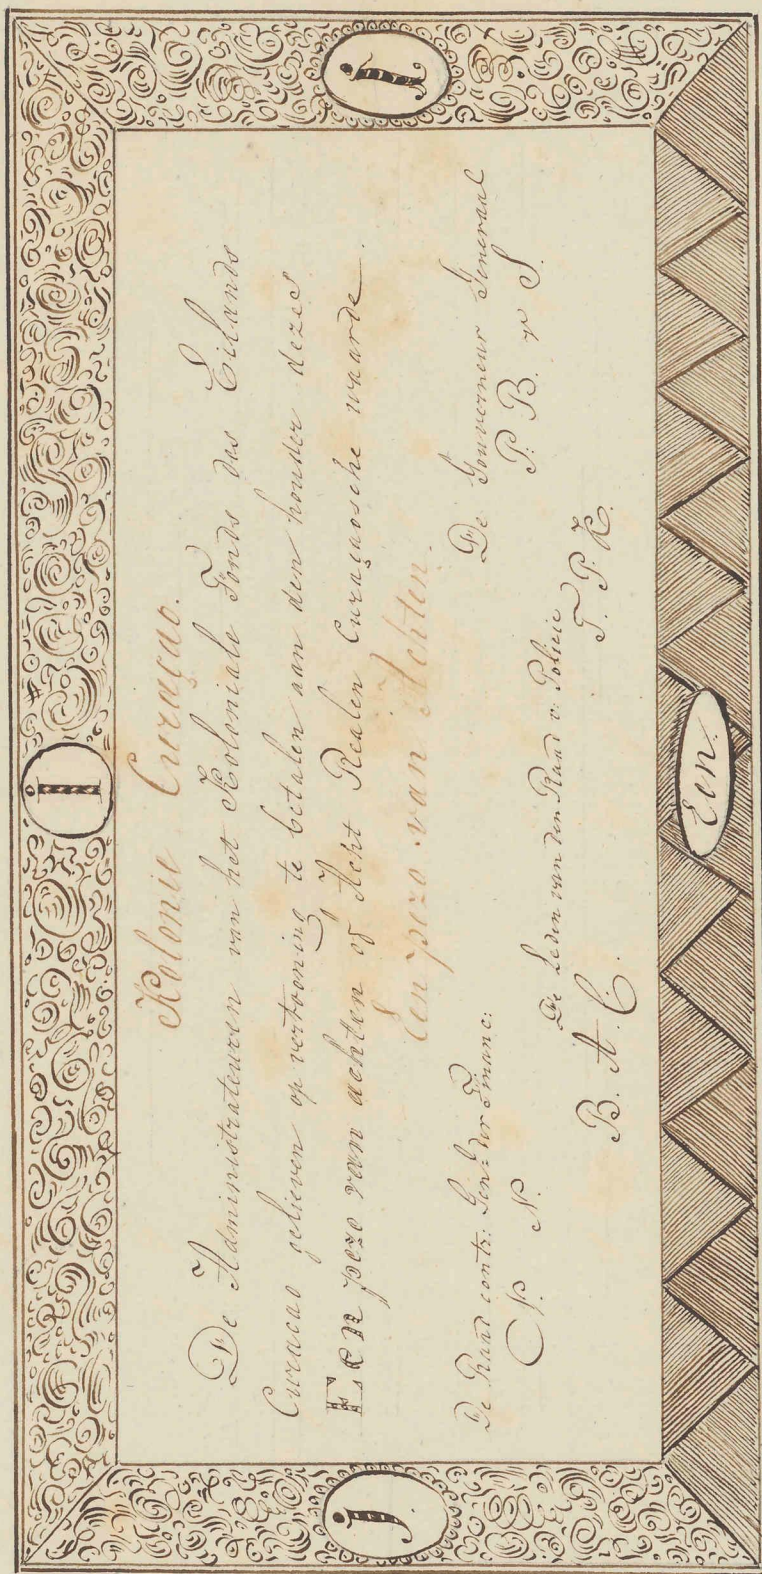 I
Kolonie Curaçao.
De Administrateuren van het Koloniale Fonds des Eilands
Curacao gelieven op vertooning te betalen aan den houder dezes
Een pezo van achten of Acht Realen Curaçaosche waarde.
Een pezo van Achten.
De Raad contr: Genl: der Financ:
N. N.
De Gouverneur Generaal
P. B. v S.
De Leden van den Raad v: Policie
B. A. C.
T. P. K.
J
I
Een.